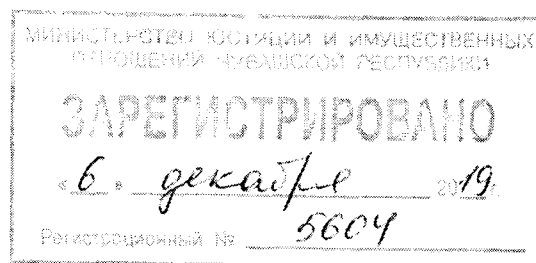 МИНИСТЕРСТВО ЮСТИЦИИ И ИМУЩЕСТВЕННЫХ
ОТНОШЕНИЙ ЧУВАШСКОЙ РЕСПУБЛИКИ
ЗАРЕГИСТРИРОВАНО
« 6 » декабря 2019г.
Регистрационный № 5604